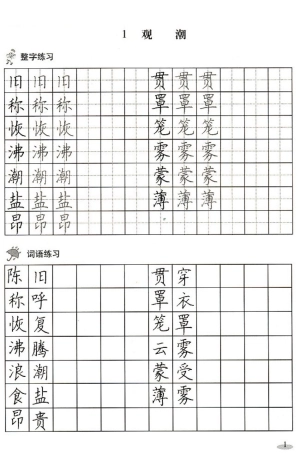 1 观 潮
整字练习
旧 旧 旧 贯 贯 贯
称 称 称 罩 罩 罩
恢 恢 恢 笼 笼 笼
沸 沸 沸 雾 雾 雾
潮 潮 潮 蒙 蒙 蒙
盐 盐 盐 薄 薄 薄
昂 昂 昂
词语练习
陈 旧 贯 穿
称 呼 罩 衣
恢 复 笼 罩
沸 腾 云 雾
浪 潮 蒙 受
食 盐 薄 雾
昂 贵
1